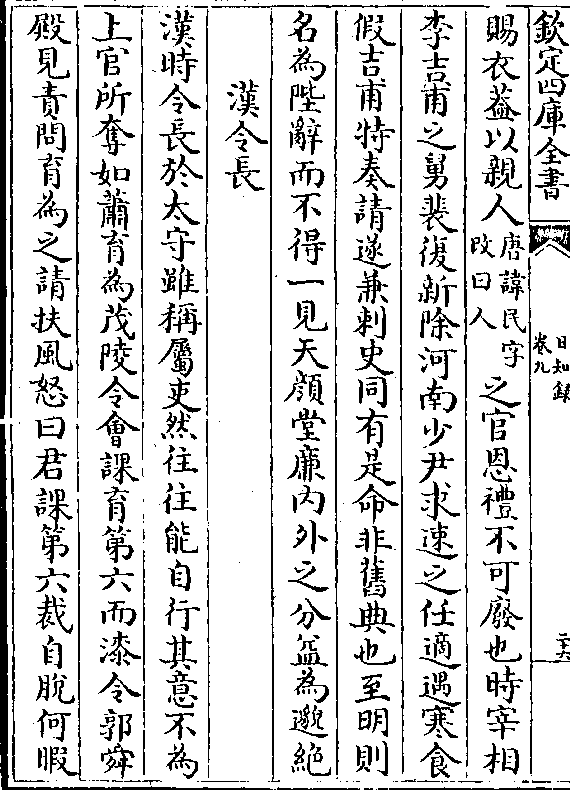 欽定四庫全書
日知錄
卷九
二十六
賜衣葢以親人唐諱民字改曰人之官恩禮不可廢也時宰相
李吉甫之舅裴復新除河南少尹求速之任適遇寒食
假吉甫特奏請遂兼剌史同有是命非舊典也至明則
名為陛辭而不得一見天顔堂廉内外之分益為邈絶
漢令長
漢時令長於太守雖稱屬吏然往往能自行其意不為
上官所奪如蕭育為茂陵令會課育第六而漆令郭舜
殿見責問育為之請扶風怒曰君課第六裁自脫何暇